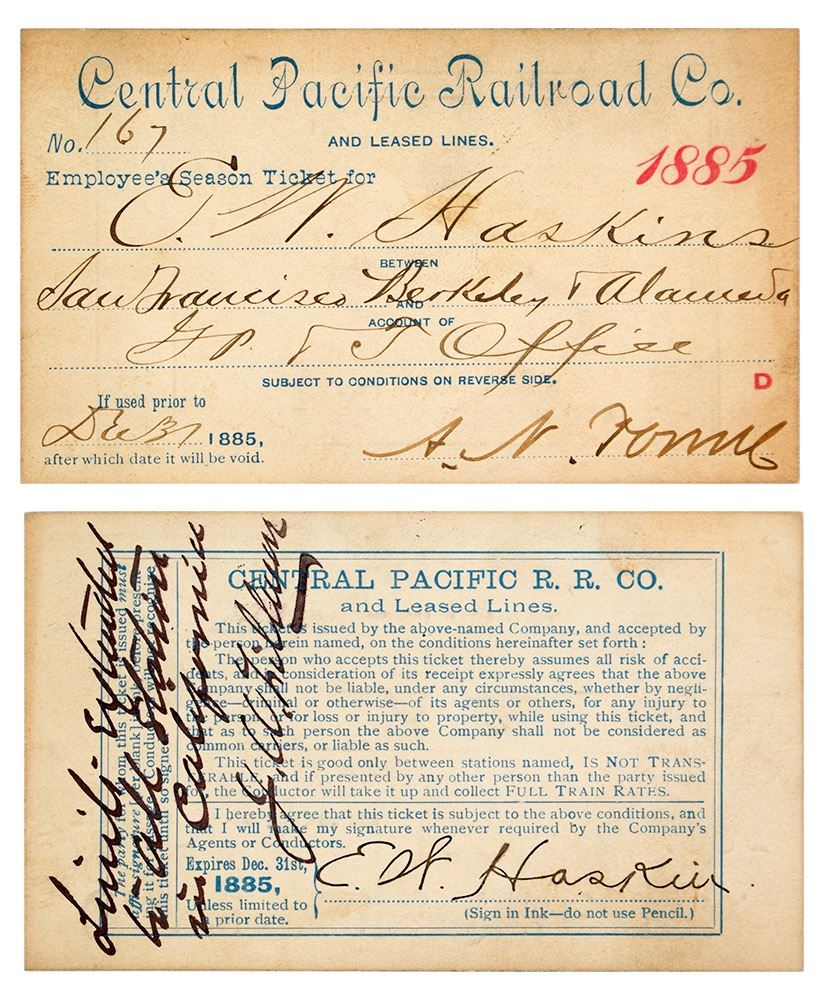 Central Pacific Railroad Co.
No. 167
AND LEASED LINES.
1885
Employee's Season Ticket for
E. W. Haskins
BETWEEN
San Francisco Berkeley & Alameda
AND
ACCOUNT OF
G P. & T Office
SUBJECT TO CONDITIONS ON REVERSE SIDE.
D
If used prior to
Dec 31 1885,
after which date it will be void.
A. N. Towne
Limits Extended
to all Stations
in California
CENTRAL PACIFIC R. R. CO.
and Leased Lines.
This ticket is issued by the above-named Company, and accepted by
the person herein named, on the conditions hereinafter set forth:
The person who accepts this ticket thereby assumes all risk of acci-
dents, and in consideration of its receipt expressly agrees that the above
Company shall not be liable, under any circumstances, whether by negli-
gence—criminal or otherwise—of its agents or others, for any injury to
the person, or for loss or injury to property, while using this ticket, and
that as to such person the above Company shall not be considered as
common carriers, or liable as such.
This ticket is good only between stations named, IS NOT TRANS-
FERABLE, and if presented by any other person than the party issued
for, the Conductor will take it up and collect FULL TRAIN RATES.
I hereby agree that this ticket is subject to the above conditions, and
that I will make my signature whenever required by the Company's
Agents or Conductors.
Expires Dec. 31st,
1885,
Unless limited to
a prior date.
E. W. Haskins
(Sign in Ink—do not use Pencil.)
The party for whom this ticket is issued must
affix signature [per blank] before present-
ing it for passage. Conductors will not recognize
this ticket until so signed